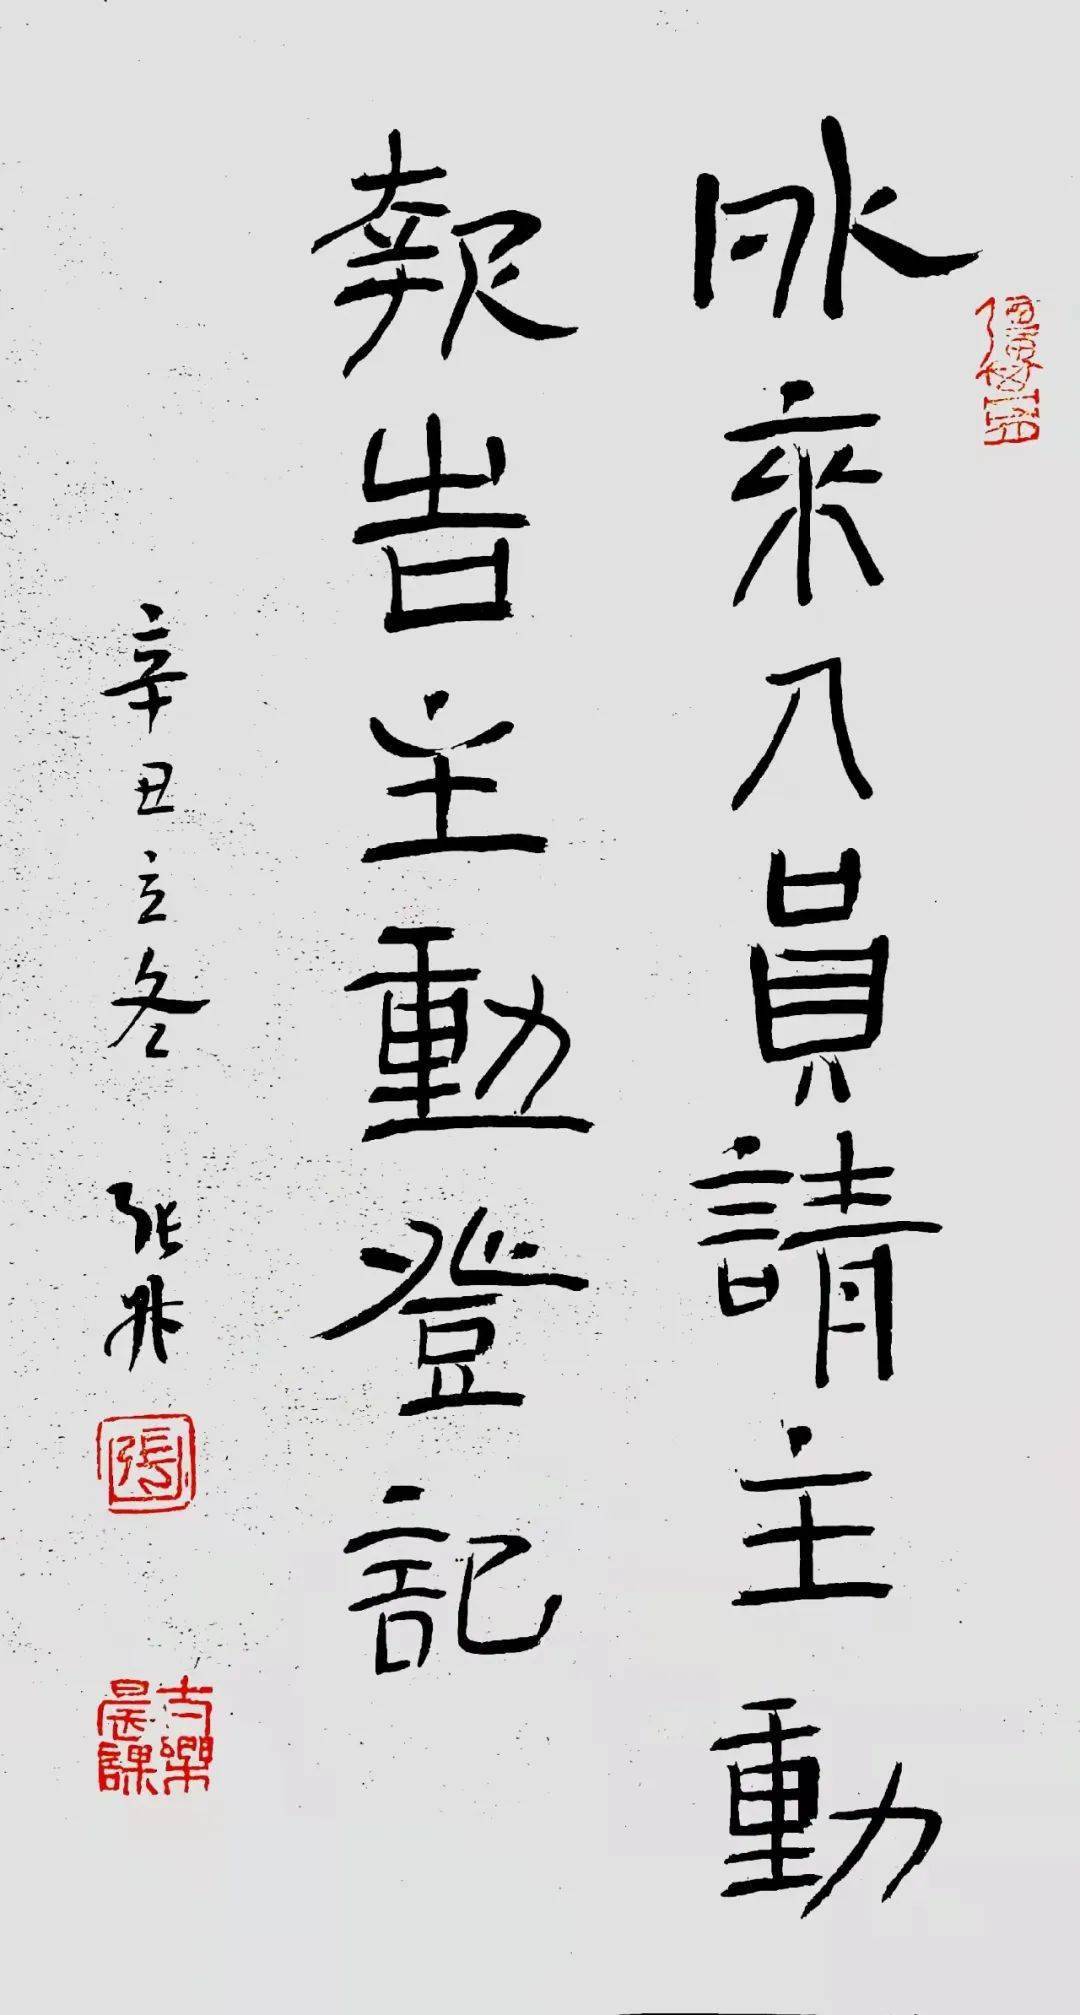 外來人員請主動
報告主動登記
辛丑立冬 张
張